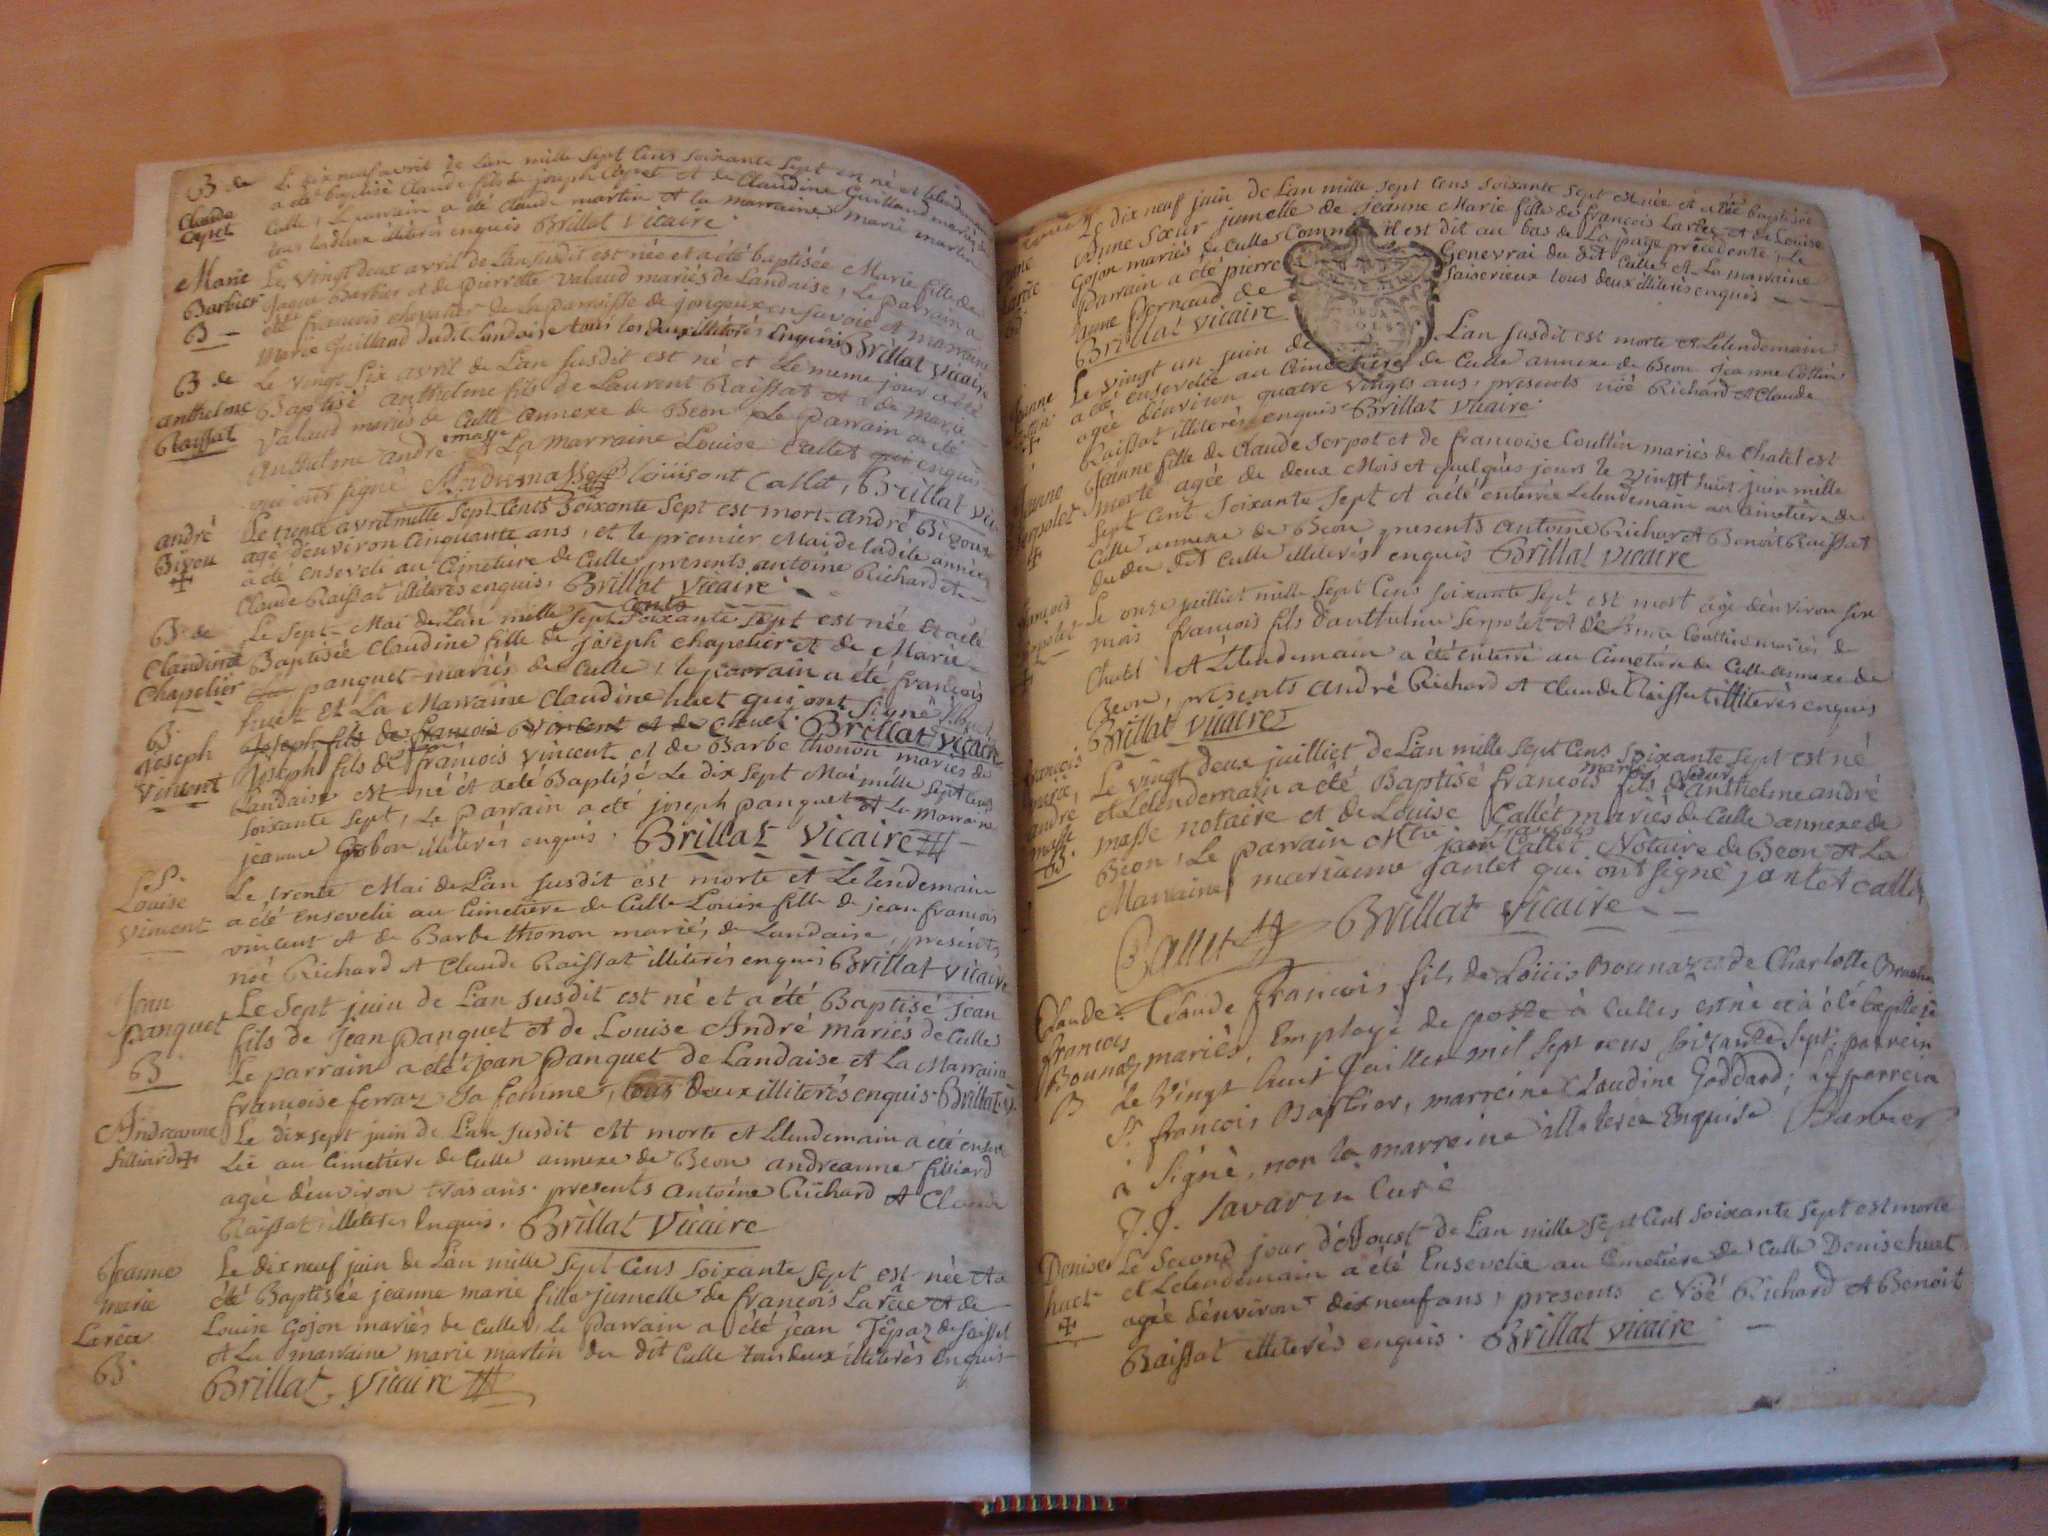 B de
Claude
Capet
Le dix neuf avril de L'an mille Sept Cens soixante Sept est né et Lelendemain
a été baptisé Claude fils de joseph Capet et de Claudine Guilland mariés de
Culle, Le parrain a été Claude martin et la marraine Marie martin
tous lesdeux illiterés enquis Brillat Vicaire
Marie
Barbier
B
Le vingt deux avril de L'an susdit est née et a été baptisée Marie fille de
Jaque Barbier et de pierrette Valaud mariés de Landaise, Le Parrain a
été françois chevalier de la Parroisse de en savoie et marraine
Marie Guilland dudit Landaise tous les deux illiterés Enquis Brillat Vicaire
B de
anthelme
Raissat
Le vingt Six avril de L'an Susdit est né et Le meme jour a été
Baptisé anthelme fils de Laurent Raissat et de Marie
Valaud mariés de Culle annexe de Beon Le Parrain a été
anthelme andré masse et La marraine Louise Callet qui enquis
ont signé Andrémasse louison Callet, Brillat Vic
andré
Bizou
Le trente avril mille Sept Cents Soixante Sept est mort andré Bizoux
agé d'environ Cinquante ans, et le premier Mai de ladite année
a été enseveli au Cimetière de Culle presents antoine Richard et
Claude Raissat illiterés enquis, Brillat Vicaire
B de
Claudine
Chapelier
Le Sept Mai de L'an mille Sept Cents Soixante Sept est née et a été
Baptisée Claudine fille de joseph Chapelier et de Marie
panquet mariés de Culle, le parrain a été françois
huet et La Marraine Claudine huet qui ont Signé huet
B
joseph
Vincent
Joseph fils de françois Vincent et de Chuet Brillat Vicaire
Joseph fils de jean françois Vincent et de Barbe thonon mariés de
Landaise est né et a été Baptisé Le dix Sept Mai mille Sept Cens
soixante Sept, Le Parrain a été joseph panquet et La Marraine
jeanne Gobon illiterés enquis, Brillat Vicaire
Louise
Vincent
Le trente Mai de L'an Susdit est morte et Le lendemain
a été ensevelie au Cimetière de Culle Louise fille de jean françois
vincent et de Barbe thonon mariés de Landaise, présents
noé Richard et Claude Raissat illiterés enquis Brillat Vicaire
Jean
Panquet
B
Le Sept juin de L'an Susdit est né et a été Baptisé Jean
fils de Jean Panquet et de Louise André mariés de Culles
Le parrain a été jean Panquet de Landaise et La Marraine
françoise ferraz Sa femme, tous deux illiterés enquis Brillat V.
Andreanne
filliard
Le dix sept juin de L'an Susdit est morte et Lelendemain a été enseve
lie au Cimetière de Culle annexe de Beon andreanne filliard
agée d'environ trois ans. presents Antoine Richard et Claude
Raissat illiterés Enquis. Brillat Vicaire
Jeanne
marie
Laréee
B
Le dix neuf juin de L'an mille Sept Cens Soixante Sept est née et a
été Baptisée jeanne marie fille jumelle de françois Larêe et de
Louise Gojon mariés de Culles, Le Parrain a été jean Tepaz de faissel
et La marraine marie martin du dit Culle tous deux illiterés Enquis
Brillat Vicaire
Le dix neuf juin de L'an mille Sept Cens Soixante Sept est née et a été baptisée
Anne Sœur jumelle de jeanne Marie fille de françois Larée et de Louise
Gojon mariés de Culles Comme il est dit au bas de La page précedente, Le
Parrain a été pierre Genevrai du dit Culles et La marraine
Anne Bernaud de Saiserieux tous deux illiterés enquis
Brillat Vicaire
Jeanne
Le Vingt un juin de L'an Susdit est morte et Lelendemain
a été ensevelie au Cimetière de Culle annexe de Beon Jeanne Cottin
agée d'environ quatre vingts ans, presents noé Richard et Claude
Raissat illiterés enquis Brillat Vicaire
Jeanne
Serpolet
Jeanne fille de Claude Serpot et de françoise Couttin mariés de Chatel est
morte agée de deux Mois et quelques jours le Vingt huit juin mille
Sept Cent Soixante Sept et a été enterrée Lelendemain au Cimetière de
Culle annexe de Beon presents antoine Richar et Benoit Raissat
du dit Culle illiterés enquis Brillat Vicaire
françois
Serpolet
Le onze juilliet mille Sept Cens Soixante Sept est mort agé d'environ Six
mois françois fils d'anthelme Serpolet et de Couttin mariés de
Chatel et Lelendemain a été enterré au Cimetière de Culle annexe de
Beon, présents andré Richard et Claude Raissat illiterés enquis
Brillat Vicaire
françois
marie
andré
masse
B
Le vingt deux juilliet de L'an mille Sept Cens Soixante Sept est né
et Lelendemain a été Baptisé françois marie fils de Sieur anthelme andré
masse notaire et de Louise Callet mariés de Culle annexe de
Beon, Le parrain Mtre jean françois Callet Notaire de Beon et La
Marraine marianne jantet qui ont signé jantet callet
Callet Brillat Vicaire
Claude
françois
Bounaz
B
Claude françois fils de Loüis Bounaz et de Charlotte
mariés, Employé de poste à Culles est né et à été baptisé
le Vingt huit juillet mil Sept cens Soixante Sept; parrein
Sr. françois Barbier, marreine Claudine Goddard; le parrein
a Signé, non la marreine illiterée Enquise Barbier
J. J. Savarin Curé
Denise
huet
Le Second jour d'Aoust de L'an mille Sept Cent Soixante Sept est morte
et Lelendemain a été Ensevelie au Cimetière de Culle Denise huet
agée d'environ dix neuf ans, presents Noé Richard et Benoit
Raissat illiterés enquis. Brillat Vicaire